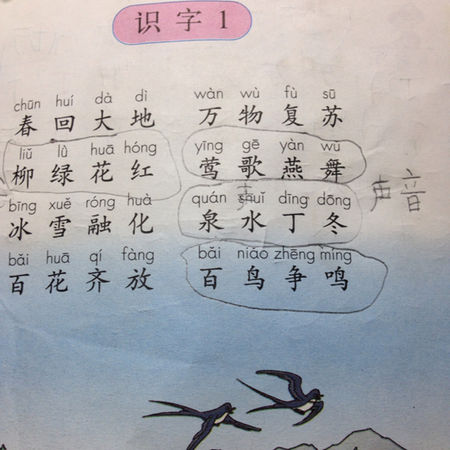 识字1
chūn huí dà dì wàn wù fù sū
春回大地 万物复苏
liǔ lǜ huā hóng yīng gē yàn wǔ
柳绿花红 莺歌燕舞
bīng xuě róng huà quán shuǐ dīng dōng
冰雪融化 泉水丁冬
bǎi huā qí fàng bǎi niǎo zhēng míng
百花齐放 百鸟争鸣
声音